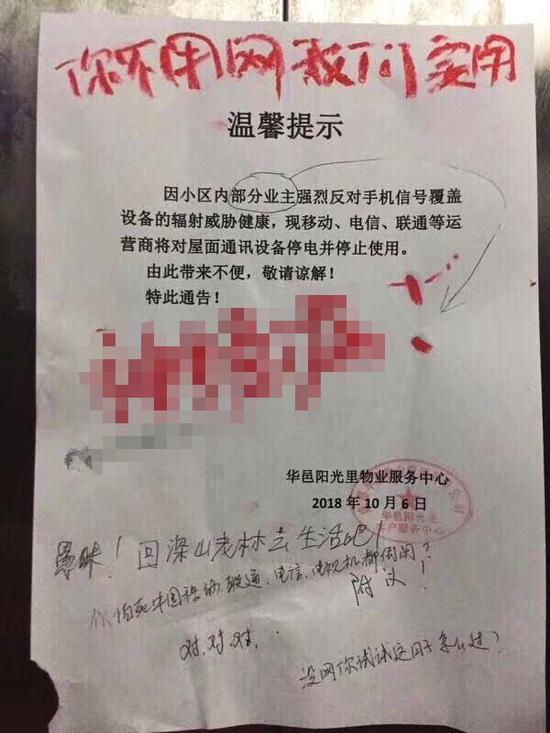 你不用网我们要用
温馨提示
因小区内部分业主强烈反对手机信号覆盖
设备的辐射威胁健康，现移动、电信、联通等运
营商将对屋面通讯设备停电并停止使用。
由此带来不便，敬请谅解！
特此通告！
华邑阳光里物业服务中心
2018 年 10 月 6 日
华邑阳光里
客户服务中心
愚昧！回深山老林去生活吧！
你怕死中国移动、联通、电信、电视机都倒闭？
附议！
对，对，对，
没网你试试这日子怎么过？